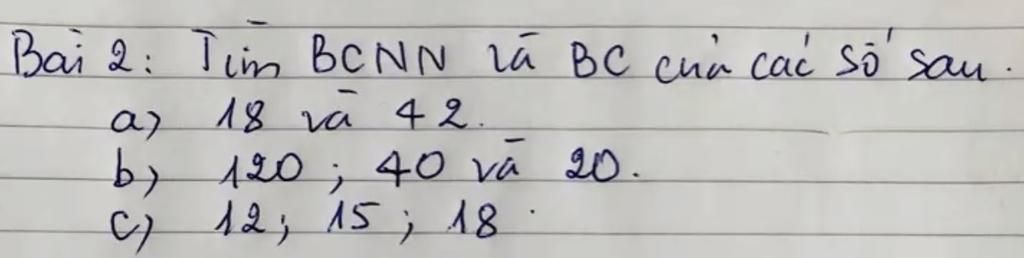 Bài 2: Tìm BCNN và BC của các số sau.
a) 18 và 42.
b) 120; 40 và 20.
c) 12; 15; 18.